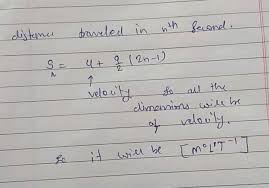 distance traveled in nth second.
Sn = u + a/2 (2n-1)
↑
velocity so all the
dimensions will be
of velocity.
so it will be [M⁰L¹T⁻¹]